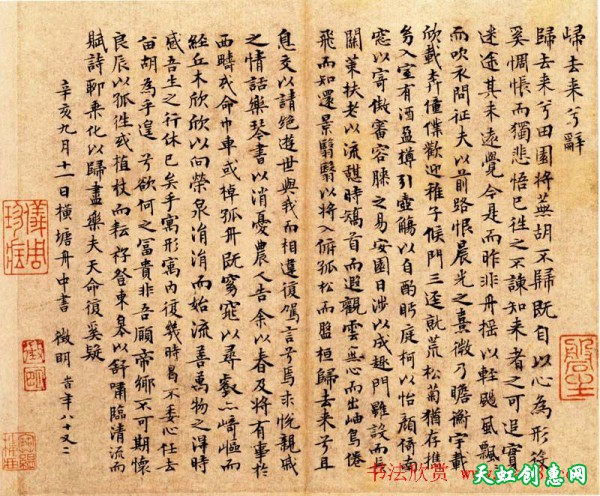 歸去来兮辭
歸去来兮田園將蕪胡不歸既自以心為形役
奚惆悵而獨悲悟已往之不諫知来者之可追實
迷途其未遠覺今是而昨非舟摇以輕颺風飄
而吹衣問征夫以前路恨晨光之熹微乃瞻衡宇載
欣載奔僮僕歡迎稚子候門三逕就荒松菊猶存携
幼入室有酒盈樽引壺觴以自酌眄庭柯以怡顔倚南
窓以寄傲審容膝之易安園日涉以成趣門雖設而長
關策扶老以流憩時矯首而遐觀雲無心而出岫鳥倦
飛而知還景翳翳以將入撫孤松而盤桓歸去来兮且
息交以請絶遊世與我而相違復駕言兮焉求悦親戚
之情話樂琴書以消憂農人告余以春及將有事於
西疇或命巾車或棹孤舟既窈窕以尋壑亦崎嶇而
經丘木欣欣以向榮泉涓涓而始流善萬物之得時
感吾生之行休已矣乎寓形寓内復幾時曷不委心任去
留胡為乎遑兮欲何之富貴非吾願帝鄉不可期懷
良辰以孤往或植杖而耘耔登東皋以舒嘯臨清流而
賦詩聊乘化以歸盡樂夫天命復奚疑
辛亥九月十一日横塘舟中書 徵明 峕年八十又二
书法欣赏
天虹创意网